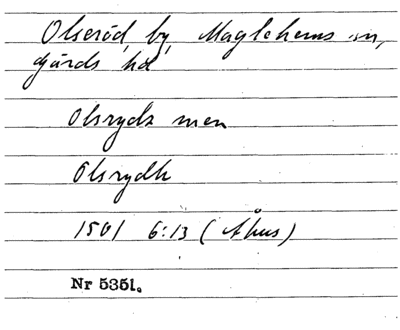 Olseröd by, Maglehems sn,
Gärds hd
Olsryds men
Olsrydh
1501 6:13 (Åhus)
Nr 5351.